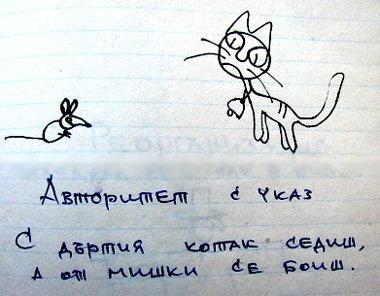 Авторитет с указ
С дъртия котак седиш,
а от мишки се боиш.